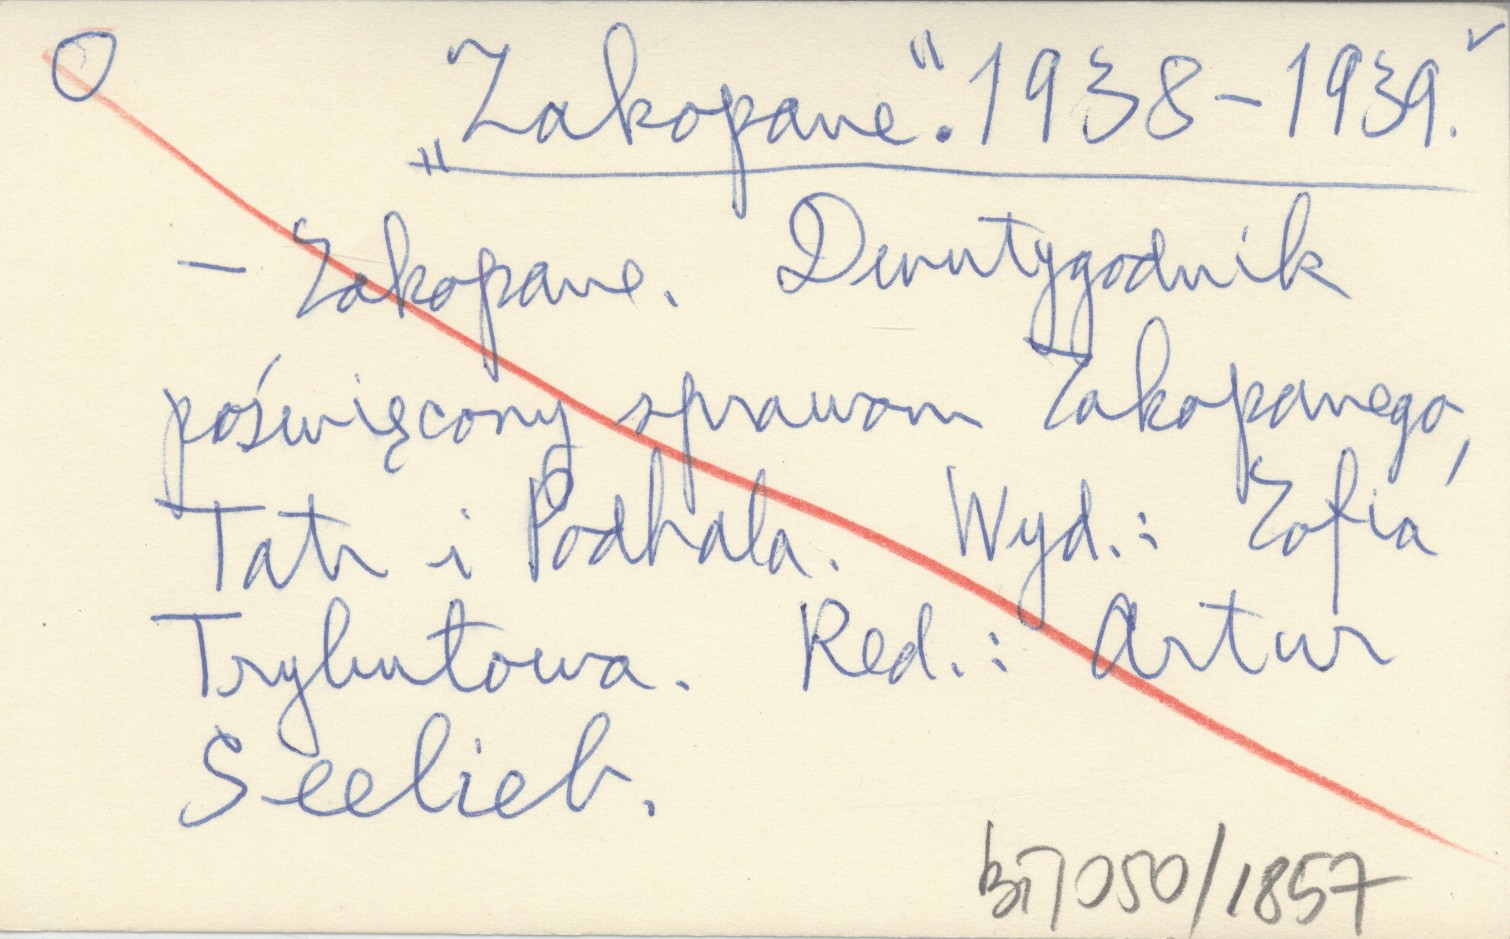 „Zakopane". 1938-1939.
- Zakopane. Dwutygodnik
poświęcony sprawom Zakopanego,
Tatr i Podhala. Wyd.: Zofia
Trybutowa. Red.: Artur
Seelieb.
050/1857